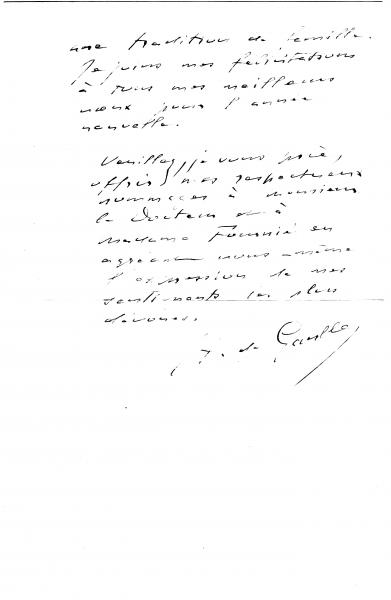 une tradition de famille.
Je joins mes félicitations
à tous mes meilleurs
vœux pour l'année
nouvelle.
Veuillez, je vous prie,
offrir mes respectueux
hommages à Monsieur
le Docteur et à
Madame Fournié en
agréant vous-même
l'expression de mes
sentiments les plus
dévoués.
de Gaulle